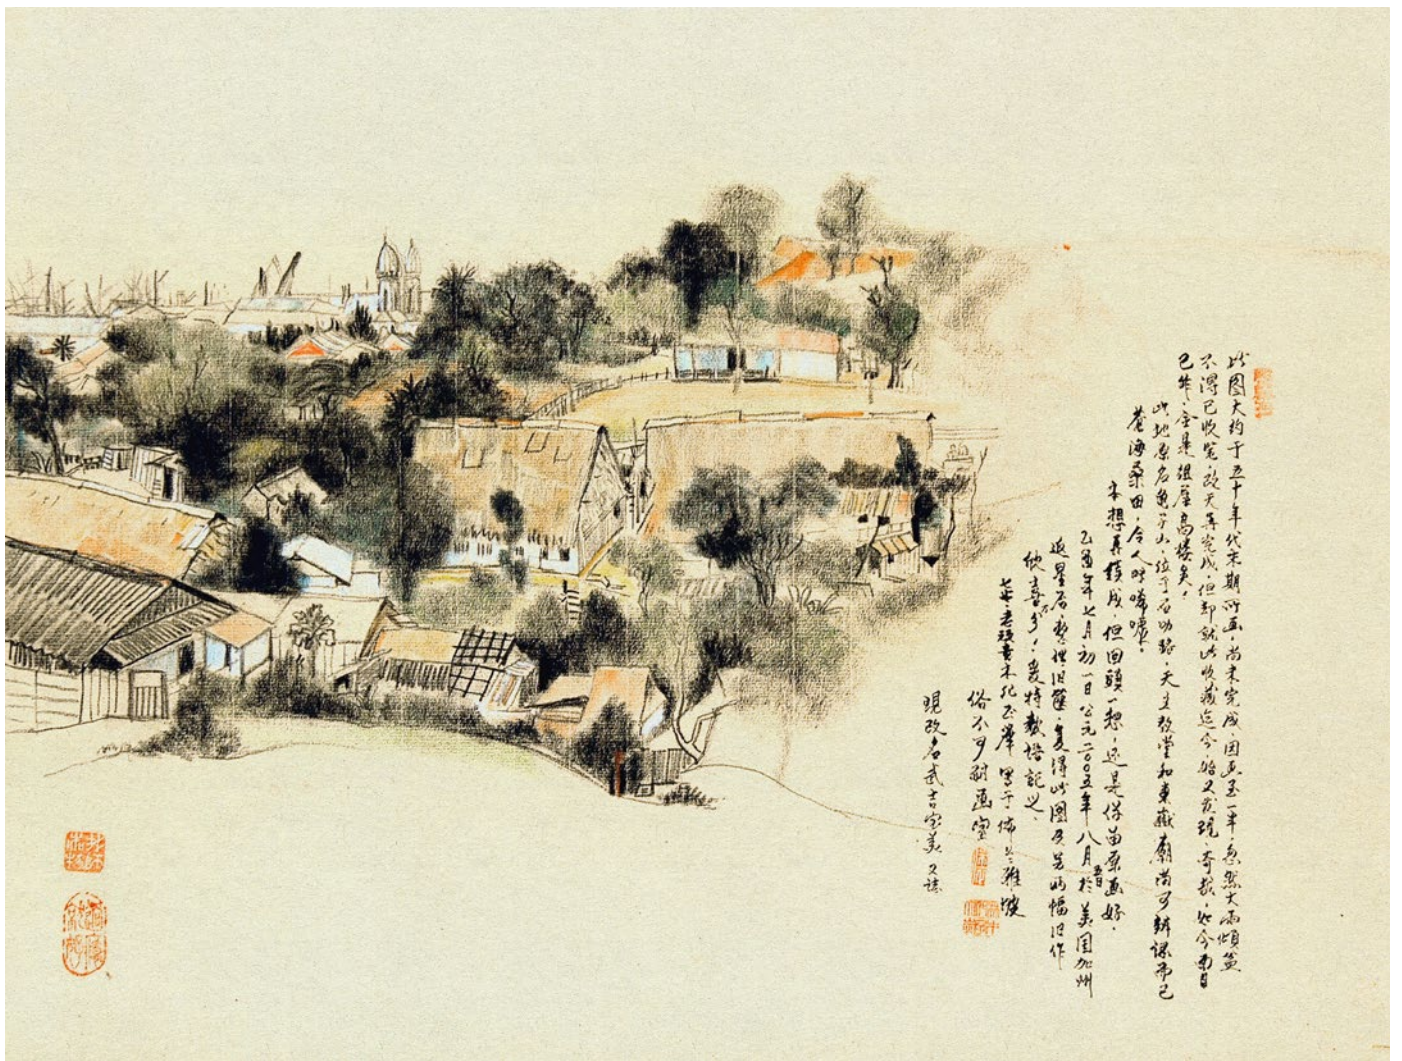 此图大约于五十年代末期所画，尚未完成，因画至一半，忽然大雨倾盆
不得已收笔，改天再完成，但却就此收藏迄今始又发现，奇哉，如今面目
已非，全是组屋高楼矣，
此地原名龟子山，位于石叻路，天主教堂和东岳廟尚可辨认而已
苍海桑田，令人吁嘘嘘。
本想再续成，但回头一想，还是保留原画好。
乙酉年七月初一日公元二00五年八月五日於美国加州
返星后整理旧箧，复得此图及另两幅旧作
欣喜万分，爰特敬悟记之，
写于
俗不可耐画室
现改名武吉宝美 又誌